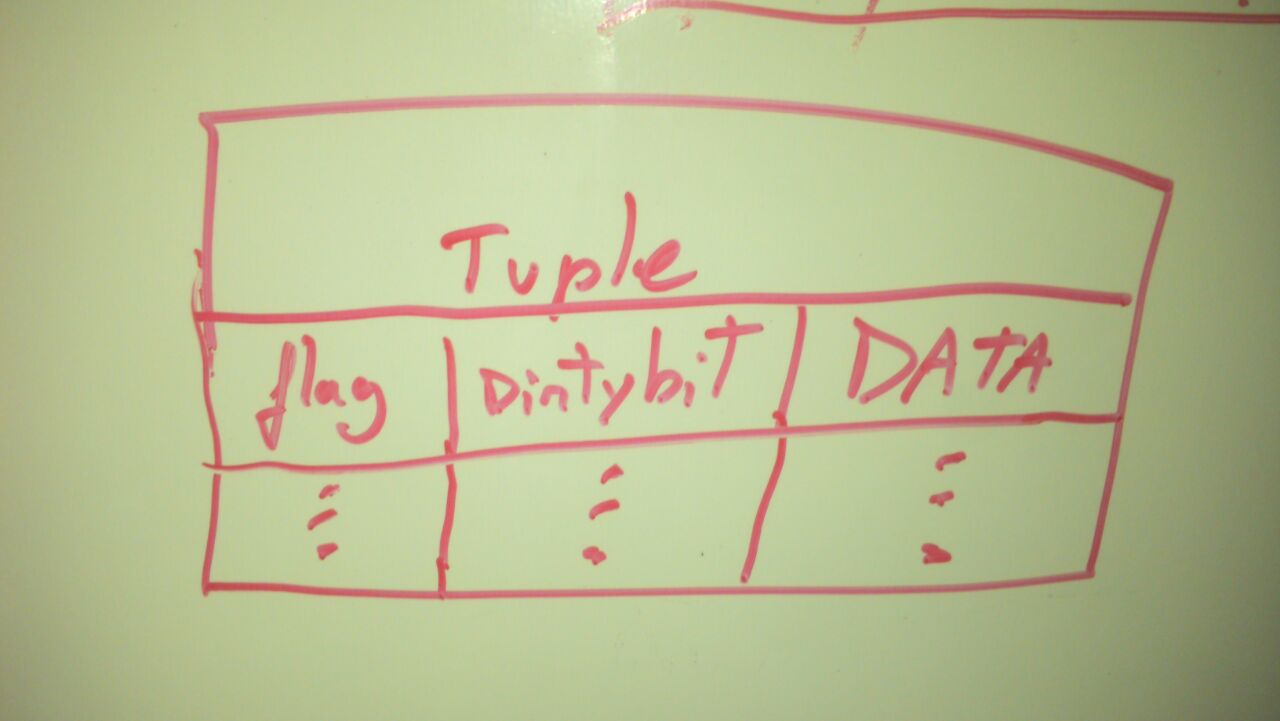 Tuple
flag Dirtybit DATA